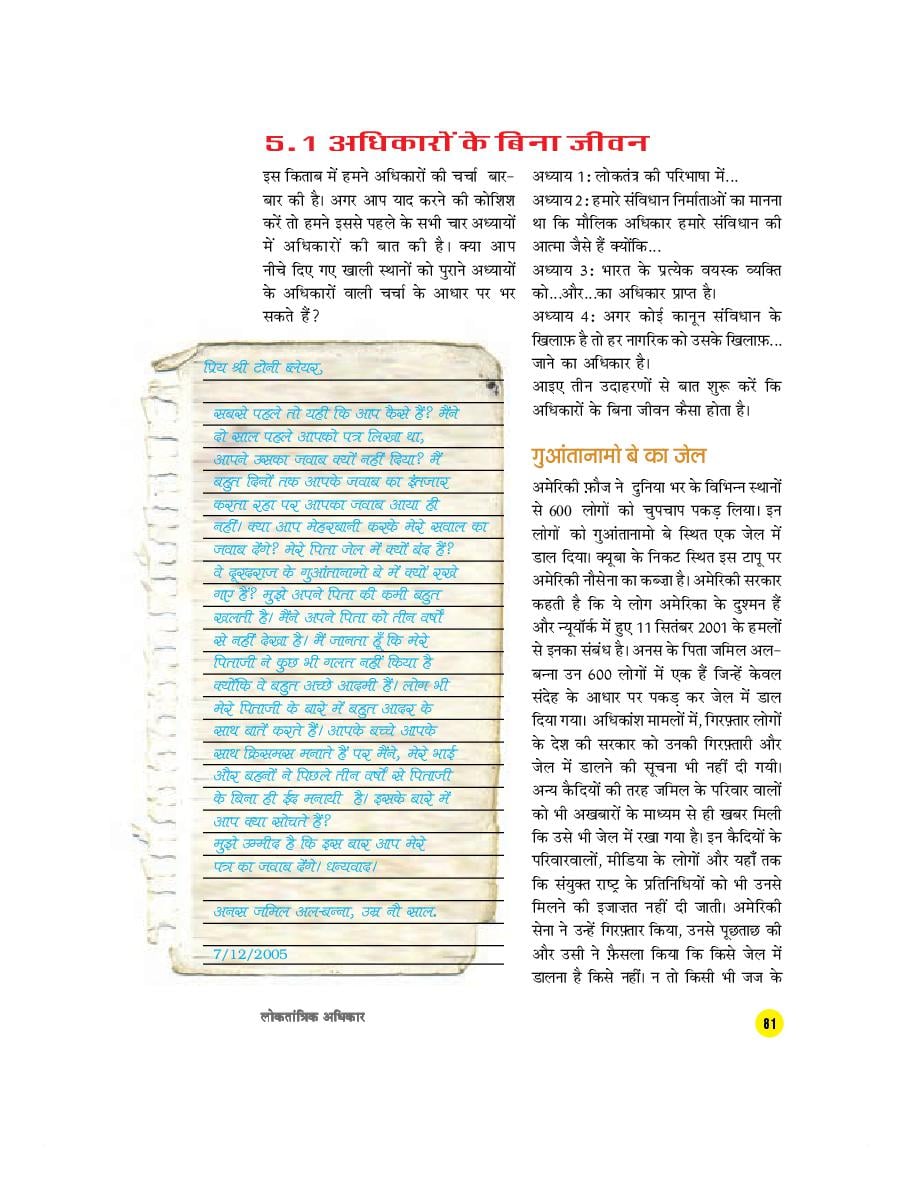 5.1 अधिकारों के बिना जीवन
इस किताब में हमने अधिकारों की चर्चा बार-
बार की है। अगर आप याद करने की कोशिश
करें तो हमने इससे पहले के सभी चार अध्यायों
में अधिकारों की बात की है। क्या आप
नीचे दिए गए खाली स्थानों को पुराने अध्यायों
के अधिकारों वाली चर्चा के आधार पर भर
सकते हैं?
प्रिय श्री टोनी ब्लेयर,
सबसे पहले तो यही कि आप कैसे हैं? मैंने
दो साल पहले आपको पत्र लिखा था,
आपने उसका जवाब क्यों नहीं दिया? मैं
बहुत दिनों तक आपके जवाब का इंतजार
करता रहा पर आपका जवाब आया ही
नहीं। क्या आप मेहरबानी करके मेरे सवाल का
जवाब देंगे? मेरे पिता जेल में क्यों बंद हैं?
वे दूरदराज के गुआंतानामो बे में क्यों रखे
गए हैं? मुझे अपने पिता की कमी बहुत
खलती है। मैंने अपने पिता को तीन वर्षों
से नहीं देखा है। मैं जानता हूँ कि मेरे
पिताजी ने कुछ भी गलत नहीं किया है
क्योंकि वे बहुत अच्छे आदमी हैं। लोग भी
मेरे पिताजी के बारे में बहुत आदर के
साथ बातें करते हैं। आपके बच्चे आपके
साथ क्रिसमस मनाते हैं पर मैंने, मेरे भाई
और बहनों ने पिछले तीन वर्षों से पिताजी
के बिना ही ईद मनायी है। इसके बारे में
आप क्या सोचते हैं?
मुझे उम्मीद है कि इस बार आप मेरे
पत्र का जवाब देंगे। धन्यवाद।
अनस जमिल अल-बन्ना, उम्र नौ साल.
7/12/2005
अध्याय 1: लोकतंत्र की परिभाषा में...
अध्याय 2: हमारे संविधान निर्माताओं का मानना
था कि मौलिक अधिकार हमारे संविधान की
आत्मा जैसे हैं क्योंकि...
अध्याय 3: भारत के प्रत्येक वयस्क व्यक्ति
को...और...का अधिकार प्राप्त है।
अध्याय 4: अगर कोई कानून संविधान के
खिलाफ़ है तो हर नागरिक को उसके खिलाफ़...
जाने का अधिकार है।
आइए तीन उदाहरणों से बात शुरू करें कि
अधिकारों के बिना जीवन कैसा होता है।
गुआंतानामो बे का जेल
अमेरिकी फ़ौज ने दुनिया भर के विभिन्न स्थानों
से 600 लोगों को चुपचाप पकड़ लिया। इन
लोगों को गुआंतानामो बे स्थित एक जेल में
डाल दिया। क्यूबा के निकट स्थित इस टापू पर
अमेरिकी नौसेना का कब्ज़ा है। अमेरिकी सरकार
कहती है कि ये लोग अमेरिका के दुश्मन हैं
और न्यूयॉर्क में हुए 11 सितंबर 2001 के हमलों
से इनका संबंध है। अनस के पिता जमिल अल-
बन्ना उन 600 लोगों में एक हैं जिन्हें केवल
संदेह के आधार पर पकड़ कर जेल में डाल
दिया गया। अधिकांश मामलों में, गिरफ़्तार लोगों
के देश की सरकार को उनकी गिरफ़्तारी और
जेल में डालने की सूचना भी नहीं दी गयी।
अन्य कैदियों की तरह जमिल के परिवार वालों
को भी अखबारों के माध्यम से ही खबर मिली
कि उसे भी जेल में रखा गया है। इन कैदियों के
परिवारवालों, मीडिया के लोगों और यहाँ तक
कि संयुक्त राष्ट्र के प्रतिनिधियों को भी उनसे
मिलने की इजाज़त नहीं दी जाती। अमेरिकी
सेना ने उन्हें गिरफ़्तार किया, उनसे पूछताछ की
और उसी ने फ़ैसला किया कि किसे जेल में
डालना है किसे नहीं। न तो किसी भी जज के
लोकतांत्रिक अधिकार
81